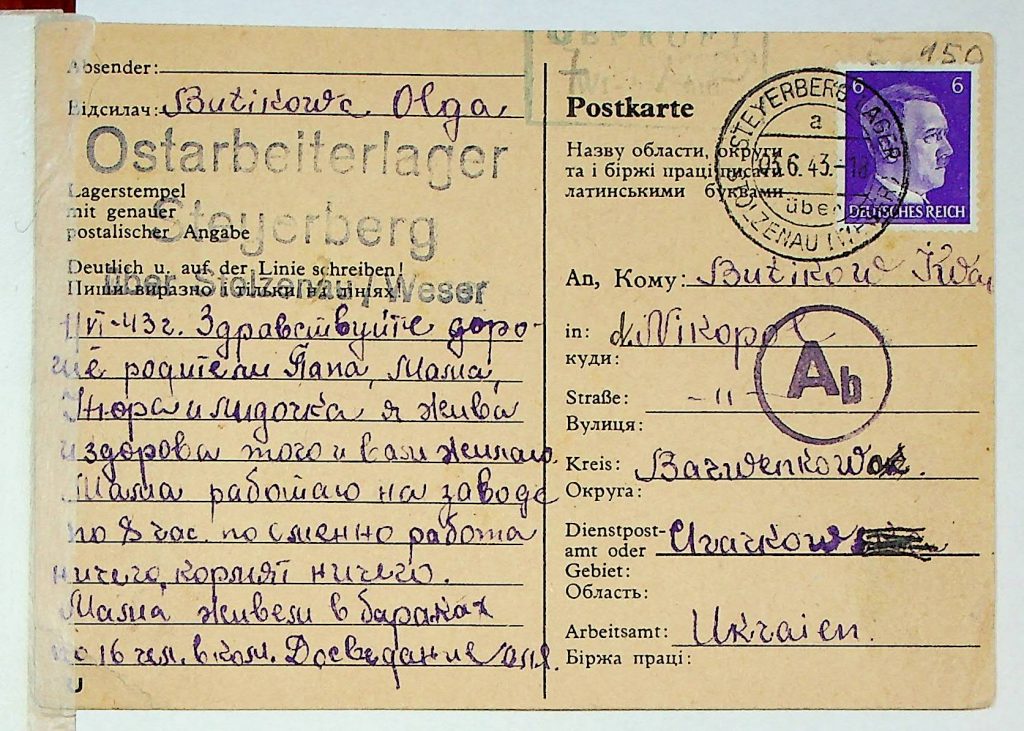 Absender:
Відсилач: Butikowa Olga
Ostarbeiterlager
Lagerstempel
mit genauer
postalischer Angabe
Steyerberg
Deutlich u. auf der Linie schreiben!
Пиши виразно і тільки на лініях!
über Stolzenau / Weser
1/VI-43г. Здравствуйте доро-
гие родители Папа, Мама,
Нюра и Лидочка я жива
и здорова того и вам желаю.
Мама работаю на заводе
по 8 час. по сменно работа
ничего, кормят ничего.
Мама живем в бараках
по 16 чел. в ком. Досведание Оля.
GEPRÜFT
150
Postkarte
Назву области, округи
та і біржі праці писати
латинськими буквами
STEYERBERG LAGER
a
03.6.43.-18
über
STOLZENAU (WESER)
6 6
DEUTSCHES REICH
An, Кому: Butikow
in: d. Nikopol
куди:
Ab
Straße: -11-
Вулиця:
Kreis: Barwenkowo
Округа:
Dienstpost-
amt oder
Gebiet:
Область:
Arbeitsamt: Ukraien.
Біржа праці: